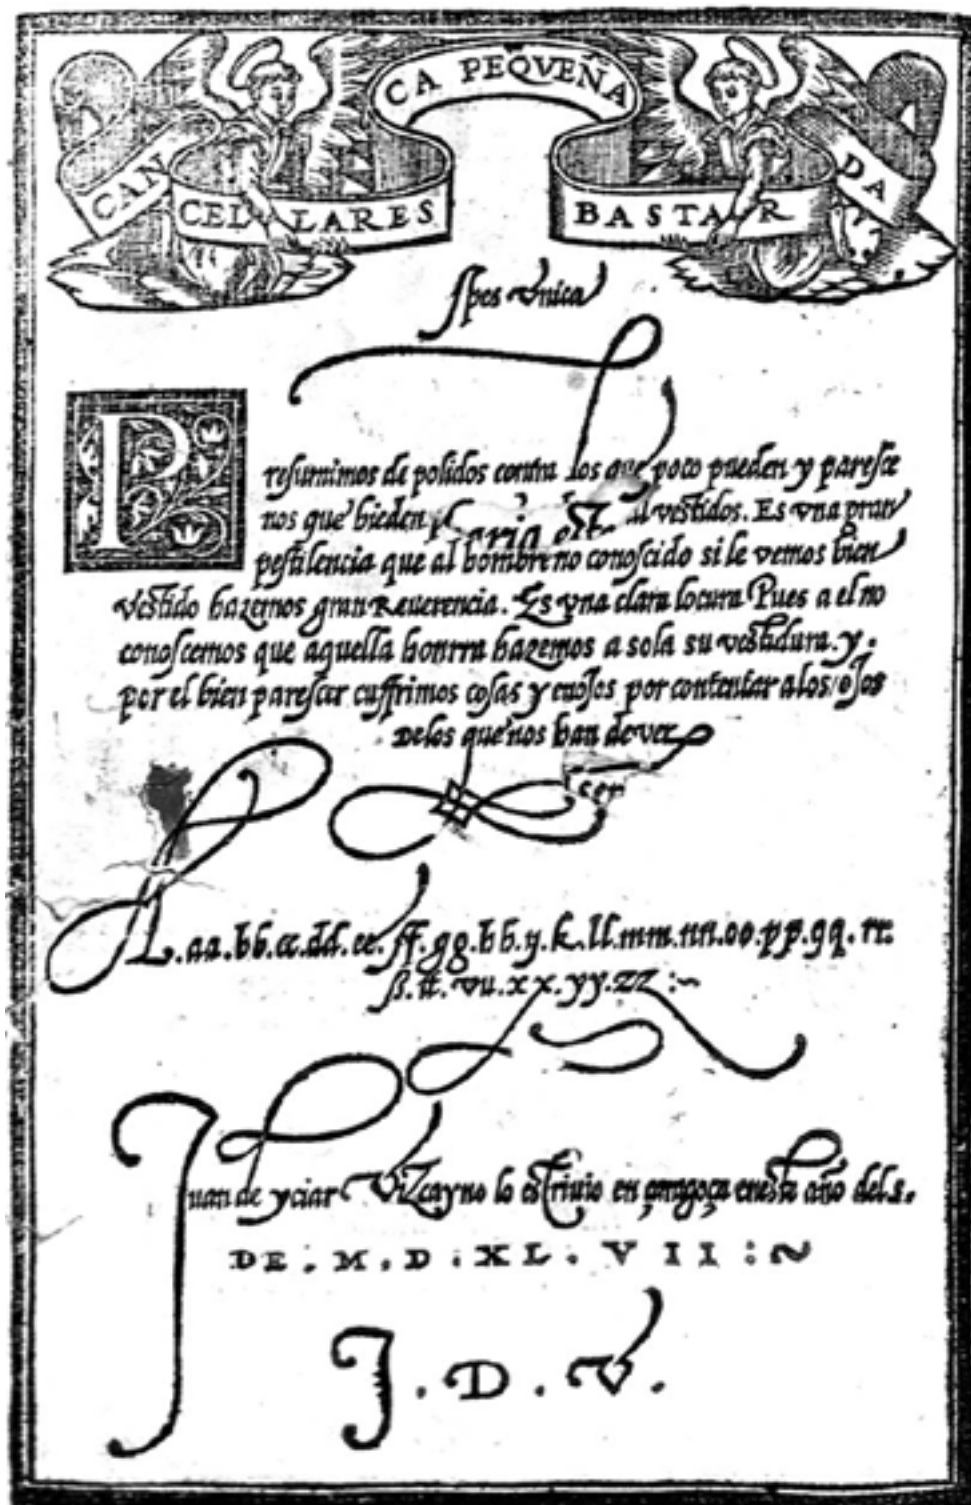 CANCELLARESCA PEQVEÑA BASTARDA
Spes vnica
Presumimos de polidos contra los que poco pueden y paresce
nos que hieden vestidos. Es vna gran
pestilencia que al hombre no conoscido si le vemos bien
vestido hazemos gran Reuerencia. Es vna clara locura Pues a el no
conoscemos que aquella honrra hazemos a sola su vestidura. y.
por el bien parescer cuffrimos cosas y enojos por contentar a los ojos
De los que nos han de ver
ser
A.aa.bb.cc.dd.ee.ff.gg.hh.y.k.ll.mm.nn.oo.pp.qq.rr.
ſs.tt.vu.xx.yy.zz :~
Juan de yciar Vizcayno lo escriuio en çaragoça eneste año del.s.
DE . M . D . XL . VII :~
J . D . V .